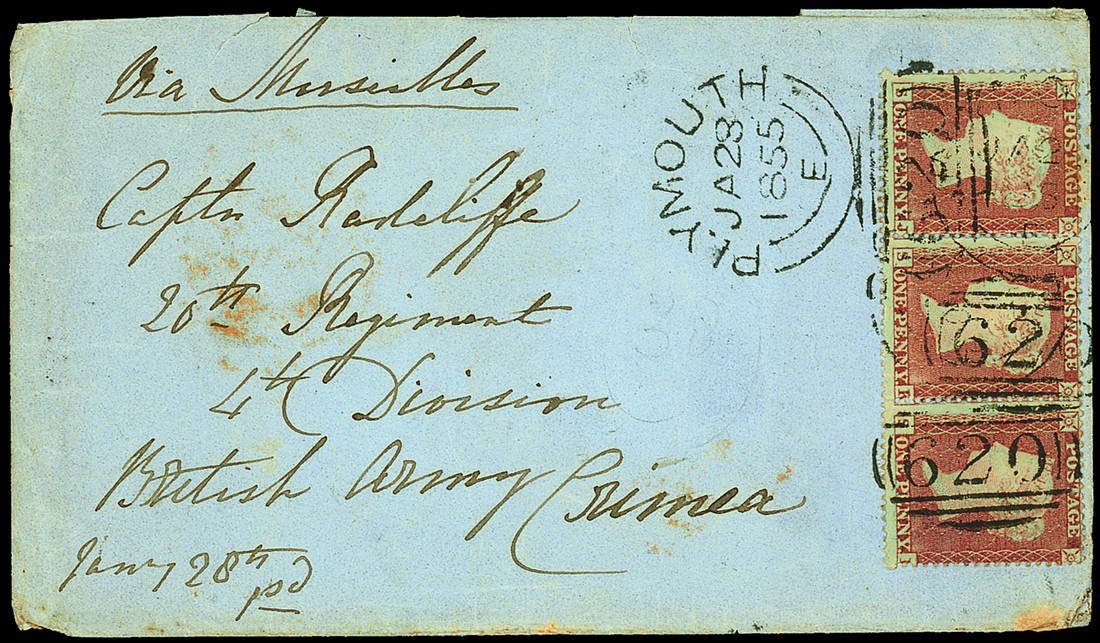 Via Marseilles
Captn Radcliffe
20th Regiment
4th Division
British Army
Crimea
Jany 28th
pd
PLYMOUTH
JA 28
1855
E
POSTAGE
ONE PENNY
S J
POSTAGE
ONE PENNY
S K
POSTAGE
ONE PENNY
620
620